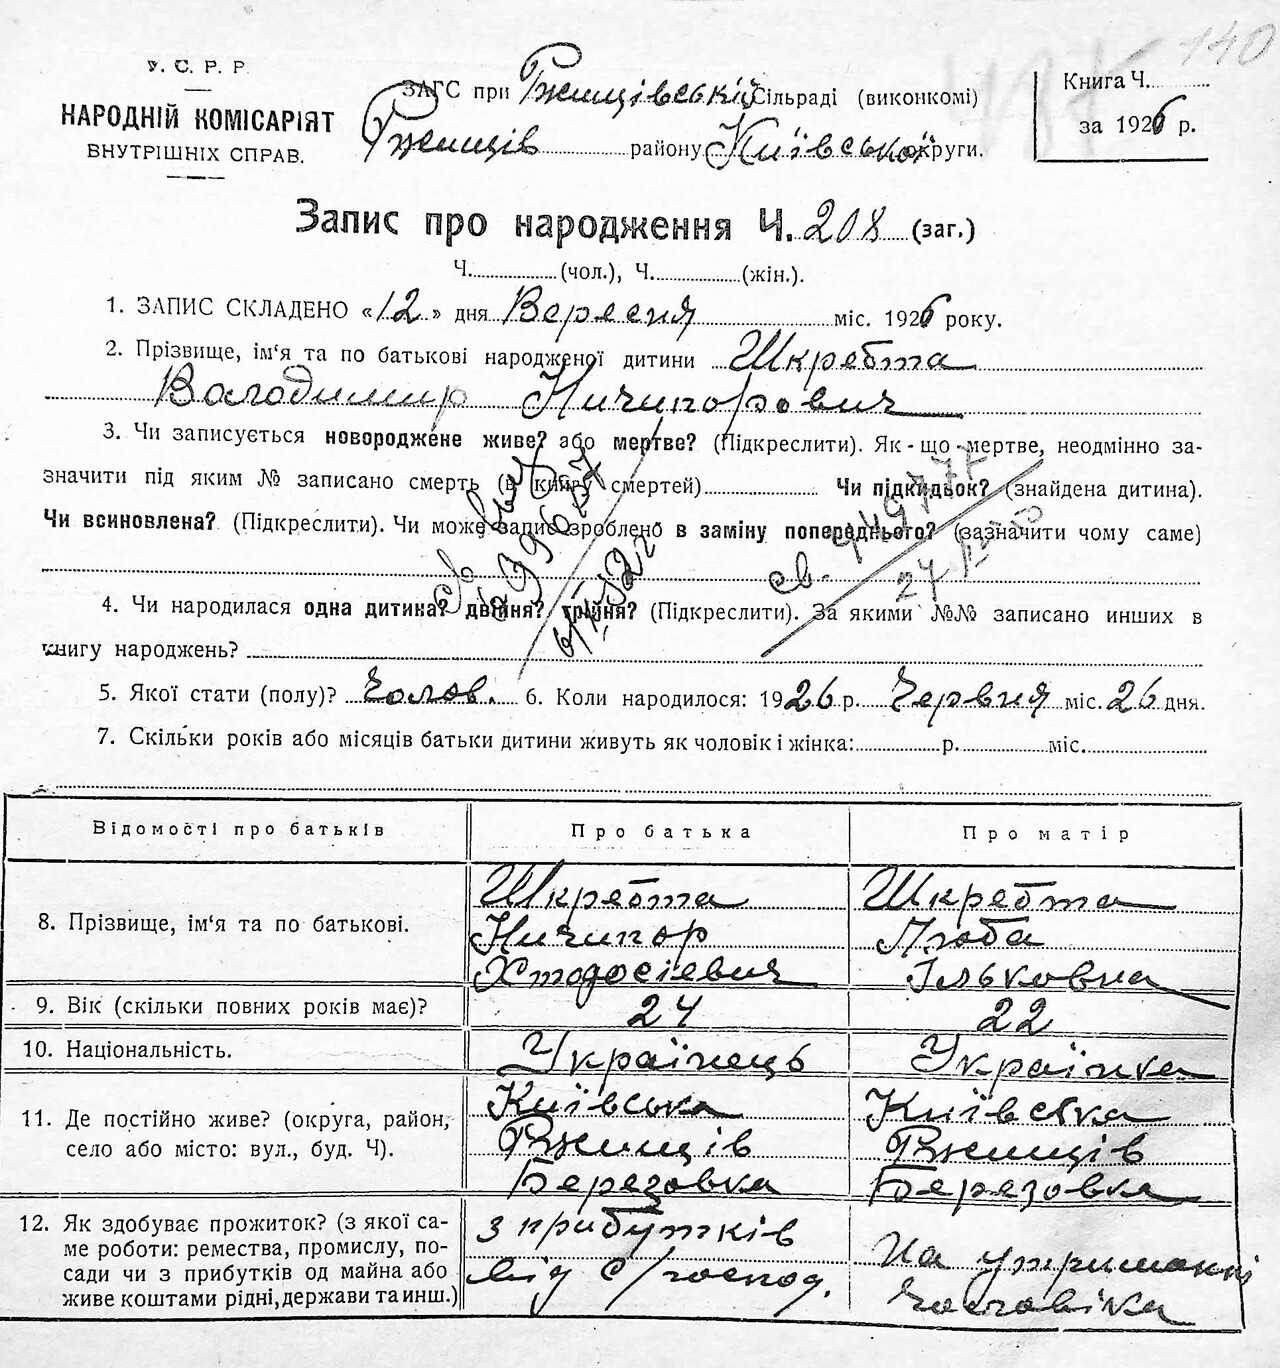 140
У. С. Р. Р.
НАРОДНІЙ КОМІСАРІЯТ
ВНУТРІШНІХ СПРАВ.
ЗАГС при Ржищівській Сільраді (виконкомі)
Ржищів району Київської округи.
Книга Ч.
за 1926 р.
Запис про народження Ч. 208 (заг.)
Ч. (чол.), Ч. (жін.).
1. ЗАПИС СКЛАДЕНО «12» дня Вересня міс. 1926 року.
2. Прізвище, ім‘я та по батькові народженої дитини Шкребта
Володимир Ничипорович
3. Чи записується новороджене живе? або мертве? (Підкреслити). Як-що мертве, неодмінно за-
значити під яким № записано смерть (в книгу смертей) Чи підкидьок? (знайдена дитина).
Чи всиновлена? (Підкреслити). Чи може запис зроблено в заміну попереднього? (зазначити чому саме)
св. 449777
4. Чи народилася одна дитина? двійня? трійня? (Підкреслити). За якими №№ записано инших в
книгу народжень?
5. Якої стати (полу)? Чолов. 6. Коли народилося: 1926 р. Червня міс. 26 дня.
7. Скільки років або місяців батьки дитини живуть як чоловік і жінка: р. міс.
Відомості про батьків
Про батька
Про матір
8. Прізвище, ім‘я та по батькові.
Шкребта
Ничипор
Хтодосієвич
Шкребта
Люба
Ільковна
9. Вік (скільки повних років має)?
24
22
10. Національність.
Українець
Українка
11. Де постійно живе? (округа, район,
село або місто: вул., буд. Ч).
Київська
Ржищів
Березовка
Київська
Ржищів
Березовка
12. Як здобуває прожиток? (з якої са-
ме роботи: ремества, промислу, по-
сади чи з прибутків од майна або
живе коштами рідні, держави та инш.)
з прибутків
від с/господ.
На утриманні
Чоловіка